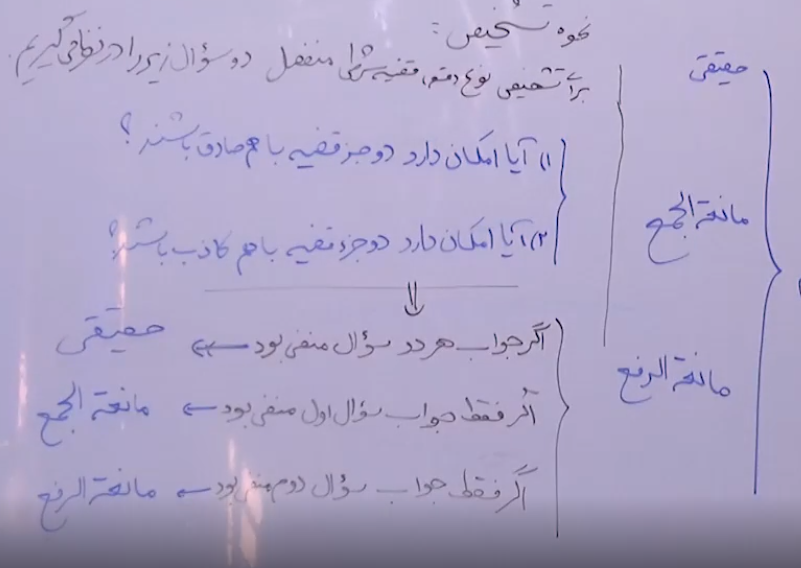 نحوه تشخیص:
برای تشخیص نوع دقیق قضیه شرطی منفصل دو سؤال زیر را در نظر می‌گیریم.
۱) آیا امکان دارد دو جزء قضیه با هم صادق باشند؟
۲) آیا امکان دارد دو جزء قضیه با هم کاذب باشند؟
⇓
اگر جواب هر دو سؤال منفی بود ⇐ حقیقی
اگر فقط جواب سؤال اول منفی بود ⇐ مانعة الجمع
اگر فقط جواب سؤال دوم منفی بود ⇐ مانعة الرفع
حقیقی
مانعة الجمع
مانعة الرفع